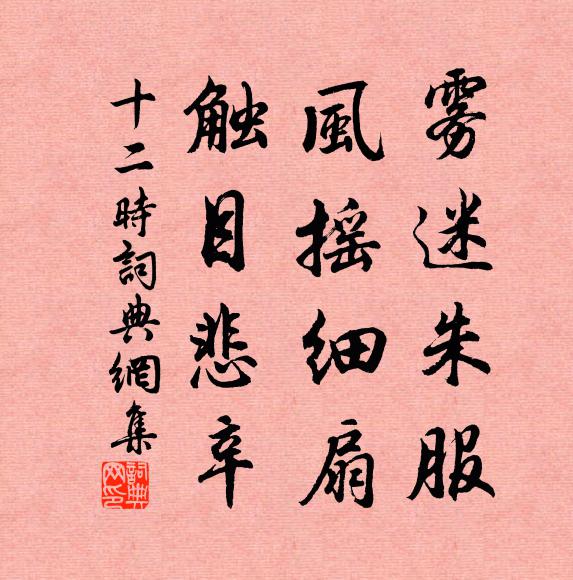 雾迷朱服
風摇细扇
触目悲辛
十二時詞典網集
詞典网印